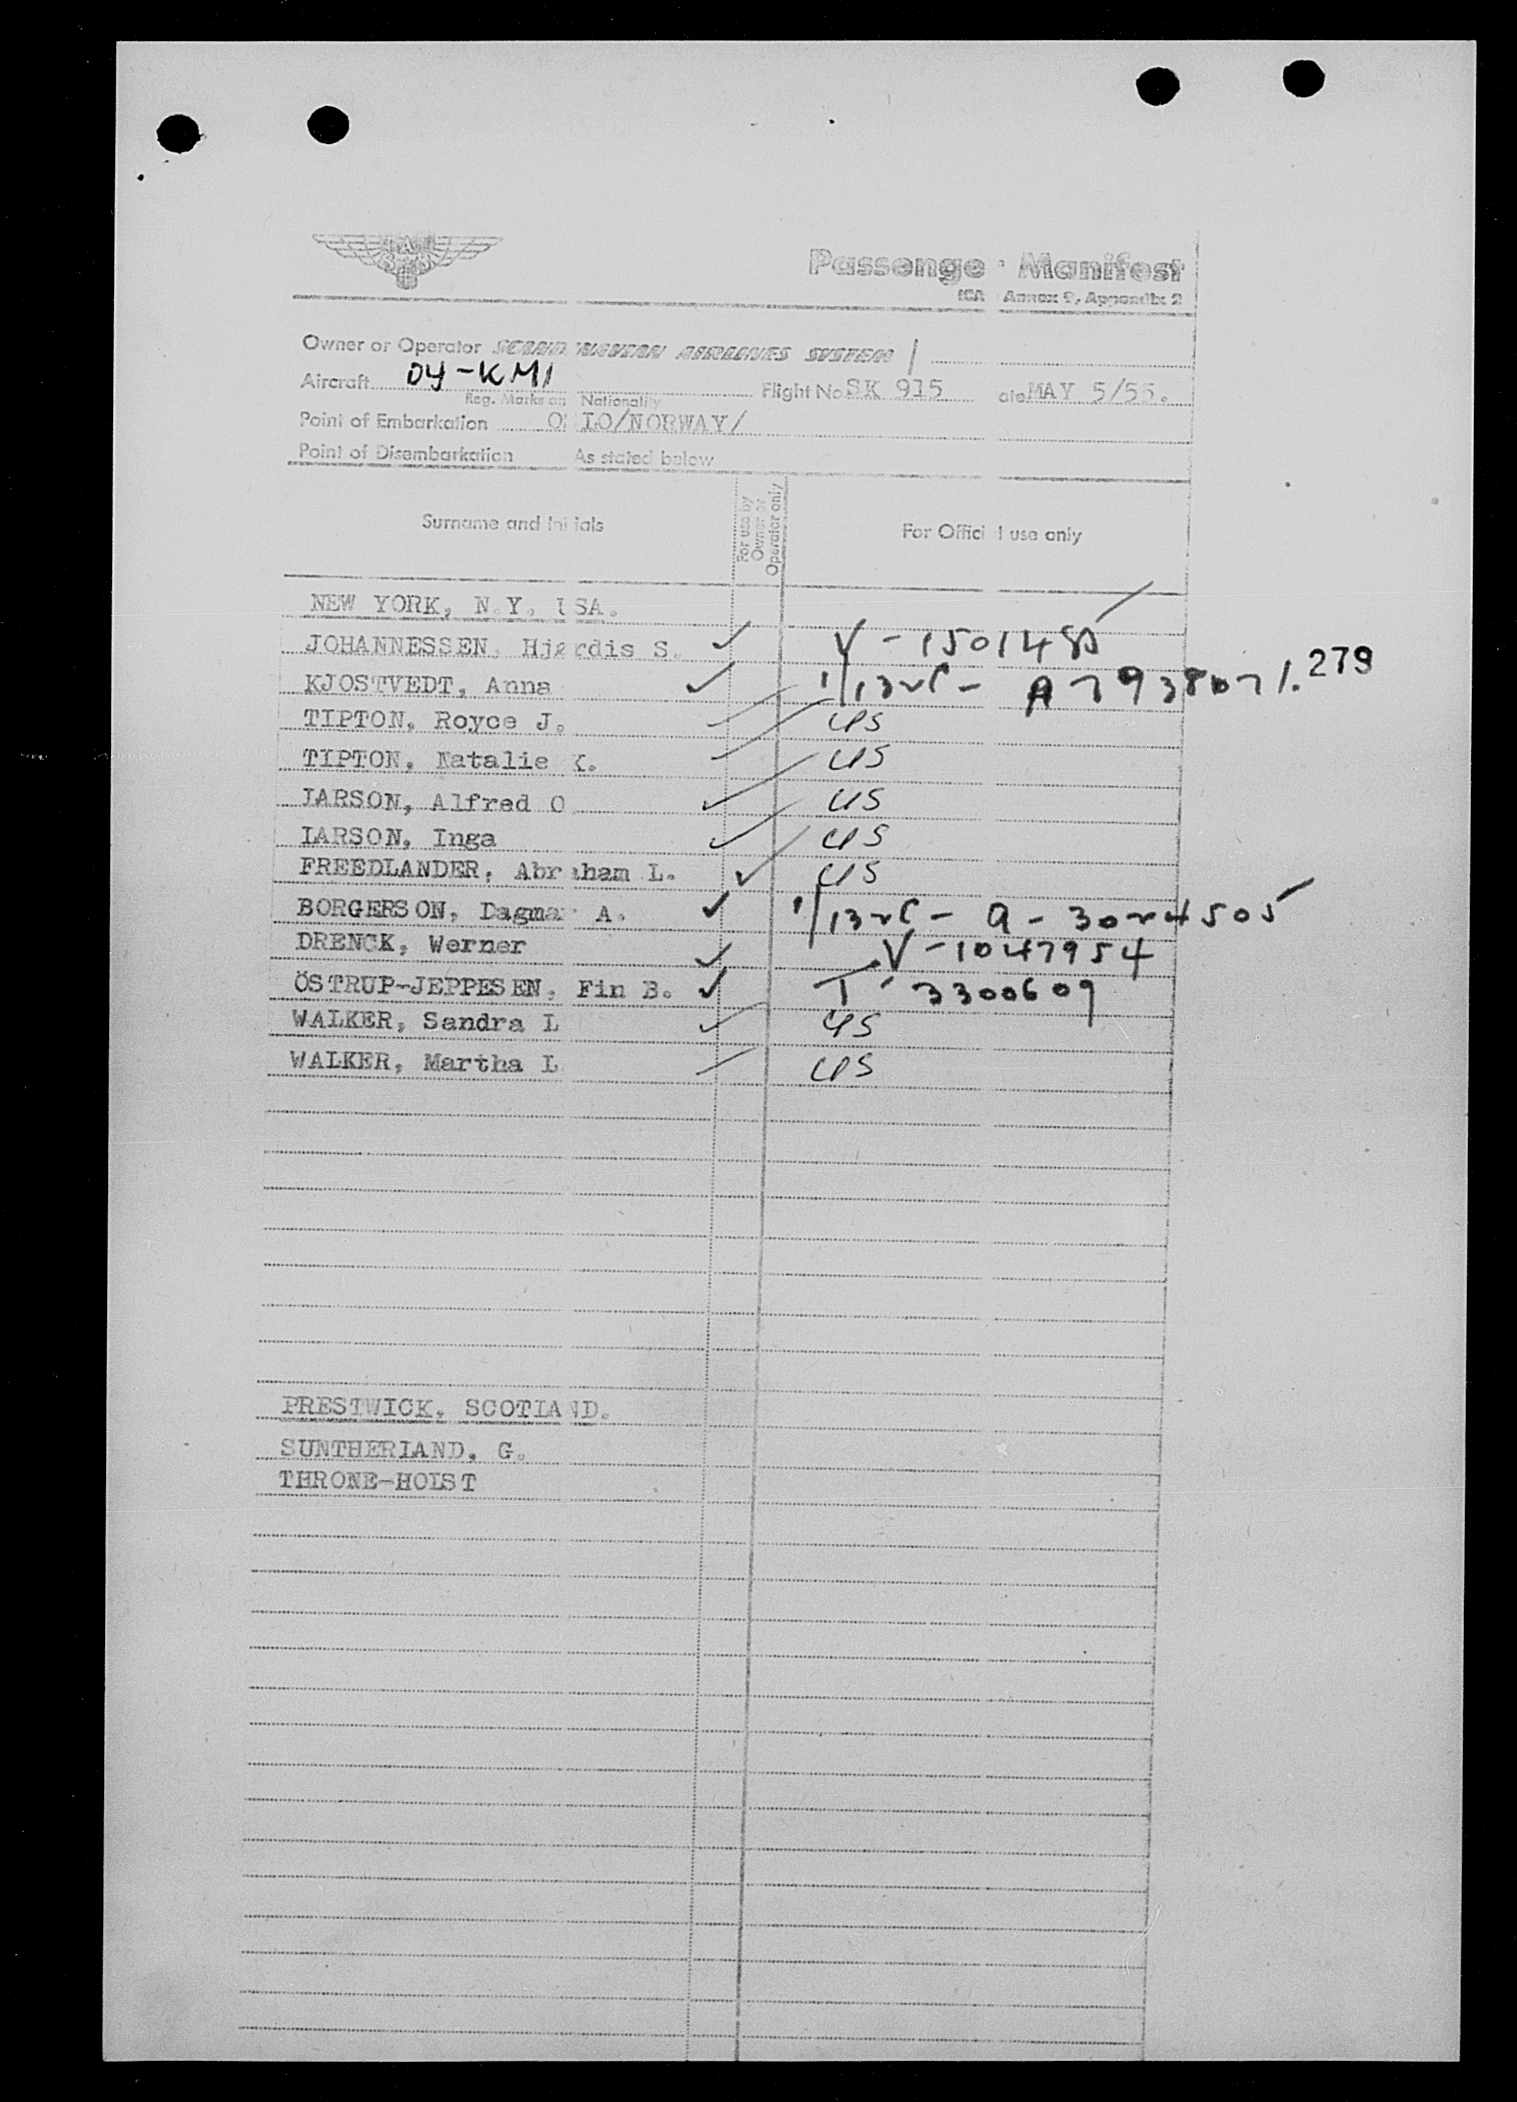 Passenge Manifest
ICA Annex 9, Appendix 2
Owner or Operator SCANDINAVIAN AIRLINES SYSTEM
Aircraft OY-KMI Flight No SK 915 ate MAY 5/55.
Reg. Marks an Nationality
Point of Embarkation O LO/NORWAY/
Point of Disembarkation As stated below
Surname and Initials
For use by
Owner or
Operator only
For Offici l use only
NEW YORK, N.Y. USA.
JOHANNESSEN, Hjørdis S. V-1501485
KJOSTVEDT, Anna 279
TIPTON, Royce J. US
TIPTON, Natalie K. US
LARSON, Alfred O US
LARSON, Inga US
FREEDLANDER, Abraham L. US
BORGERSON, Dagmar A.
DRENCK, Werner V-1047954
ÖSTRUP-JEPPESEN, Fin B. T-3300609
WALKER, Sandra L US
WALKER, Martha L US
PRESTWICK, SCOTLAND.
SUNTHERLAND, G.
THRONE-HOLST